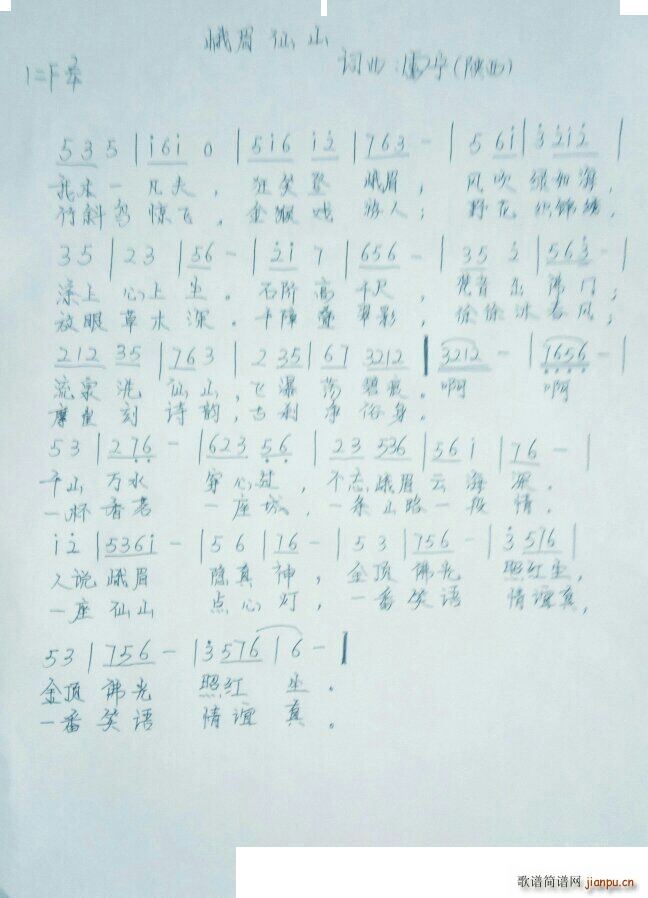 峨眉仙山
1=F 2/4 词曲：宁(陕西)
5 3 5 | i 6 i 0 | 5 i 6 i 2 | 7 6 3 - | 5 6 i | 3 2 i 2 |
我本一凡夫，狂笑登峨眉，风吹绿如海，
竹斜鸟惊飞，金猴戏游人；野花织锦绣，
3 5 | 2 3 | 5 6 - | 2 i 7 | 6 5 6 - | 3 5 2 | 5 6 3 - |
漆上心上尘。石阶高千尺，观音出佛门；
放眼草木深。千障叠翠影，徐徐沐春风；
2 1 2 3 5 | 7 6 3 | 2 3 5 | 6 7 3 2 1 2 | 3 2 1 2 - | 7 6 5 6 - |
流泉洗仙山，飞瀑荡碧痕。啊 啊
摩崖刻诗韵，古刹净俗身。
5 3 | 2 7 6 - | 6 2 3 5 6 | 2 3 5 3 6 | 5 6 i | 7 6 - |
千山万水 穿心过，不忘峨眉云海深。
一杯香茗 一座城，一条山路一段情。
i 2 | 5 3 6 i - | 5 6 | 7 6 - | 5 3 | 7 5 6 - | 3 5 7 6 |
人说峨眉 隐真神，金顶佛光 照红尘，
一座仙山 点心灯，一番笑语 情谊真，
5 3 | 7 5 6 - | 3 5 7 6 | 6 - |
金顶佛光 照红尘。
一番笑语 情谊真。
歌谱简谱网
jianpu.cn